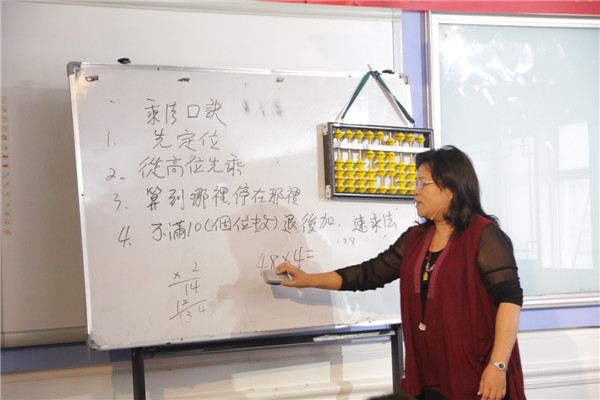 乘法口訣
1. 先定位
2. 從高位先乘
3. 算到哪裡停在那裡
4. 不滿10(個位數)退後加, 速乘法
48×4=
× 2
14
12
134